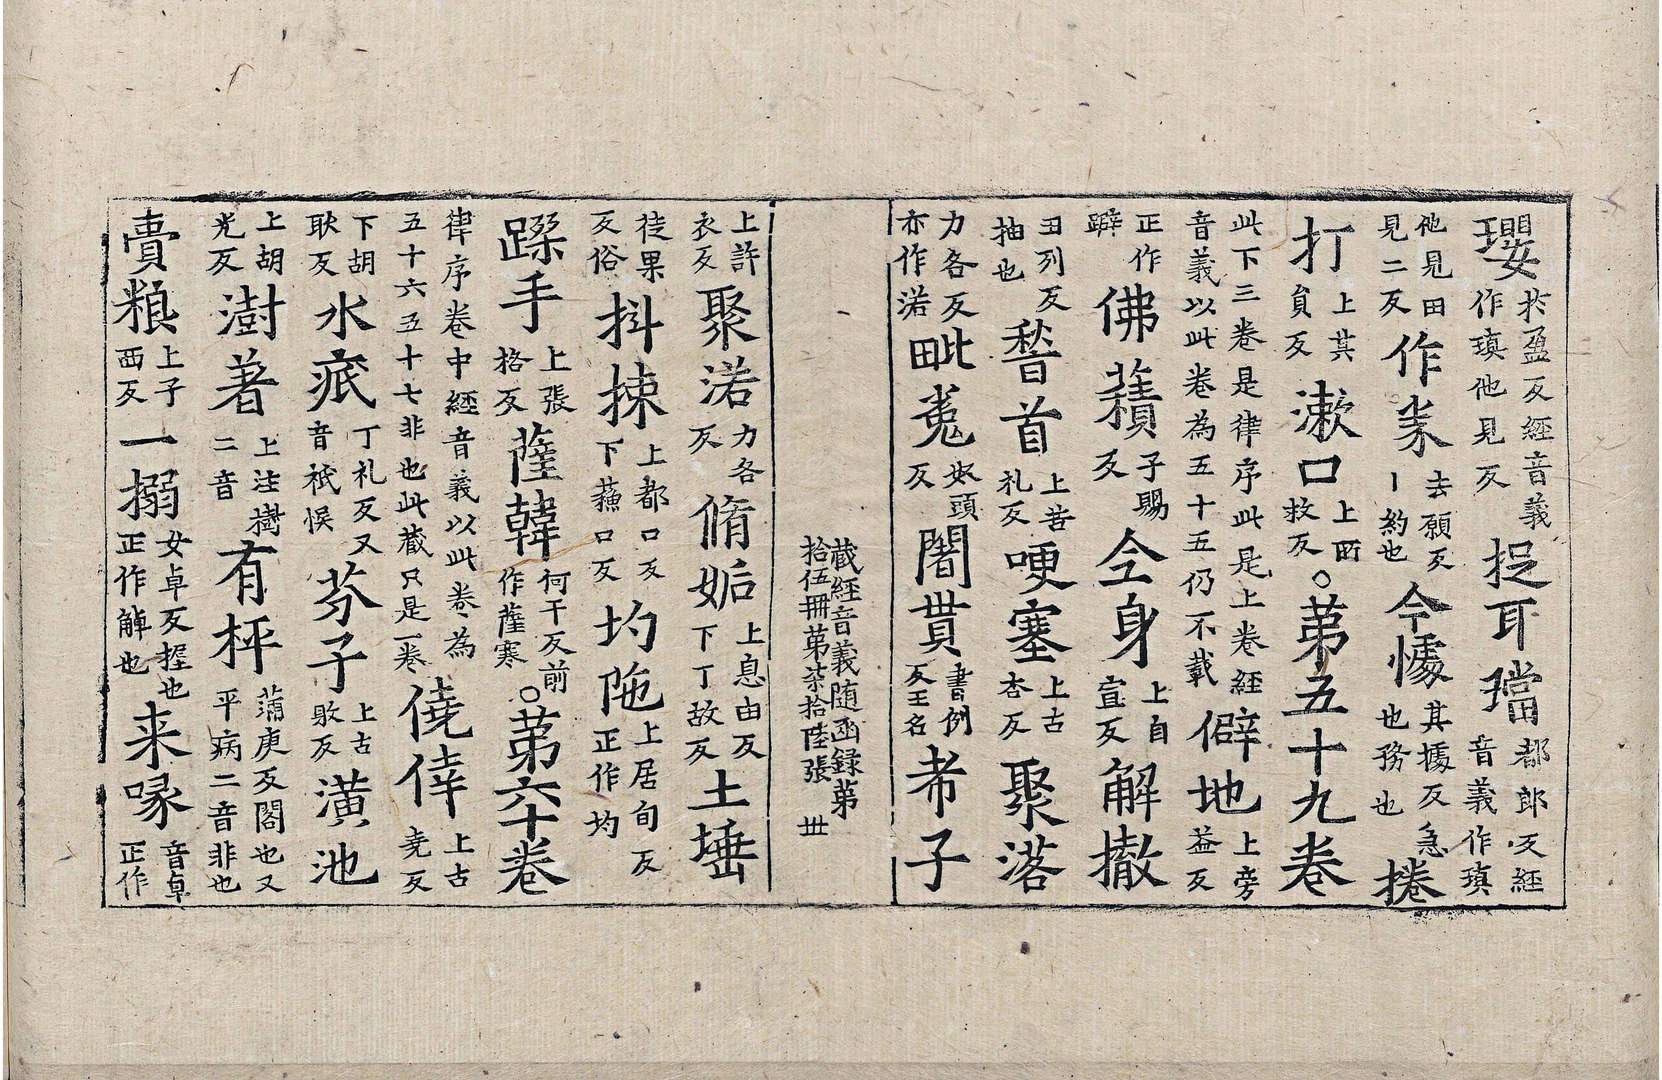 瓔於盈反經音義作瑱他見反捉耳璫都郎反經音義作瑱
他見田見二反作桊去願反丨約也今懅其據反急也務也捲
打上其員反漱口上所救反○苐五十九卷
此下三卷是律序此是上卷經音義以此卷為五十五仍不載僻地上旁益反
正作躃佛𧂐子賜反仝身上自宣反解撤
丑列反抽也𥡴首上苦礼反哽塞上古杏反聚落
力各反亦作㳣毗㝹奴頭反闍貰書例反王名希子
藏經音義随函録苐拾伍冊苐柒拾陸張 丗
上許衣反聚㳣力各反脩姤上息由反下丁故反土埵
徒果反俗抖捒上都口反下蘓口反圴陁上居旬反正作均
蹂手上張格反薩韓何干反前作薩寒○苐六十卷
律序卷中經音義以此卷為五十六五十七非也此藏只是一卷僥倖上古堯反
下胡耿反水疷丁礼反又音祇悮芬子上古敗反潢池
上胡光反澍著上注樹二音有枰蒲庚反閣也又平病二音非也
賷糓上子西反一搦女卓反握也正作觪也来㖨音卓正作